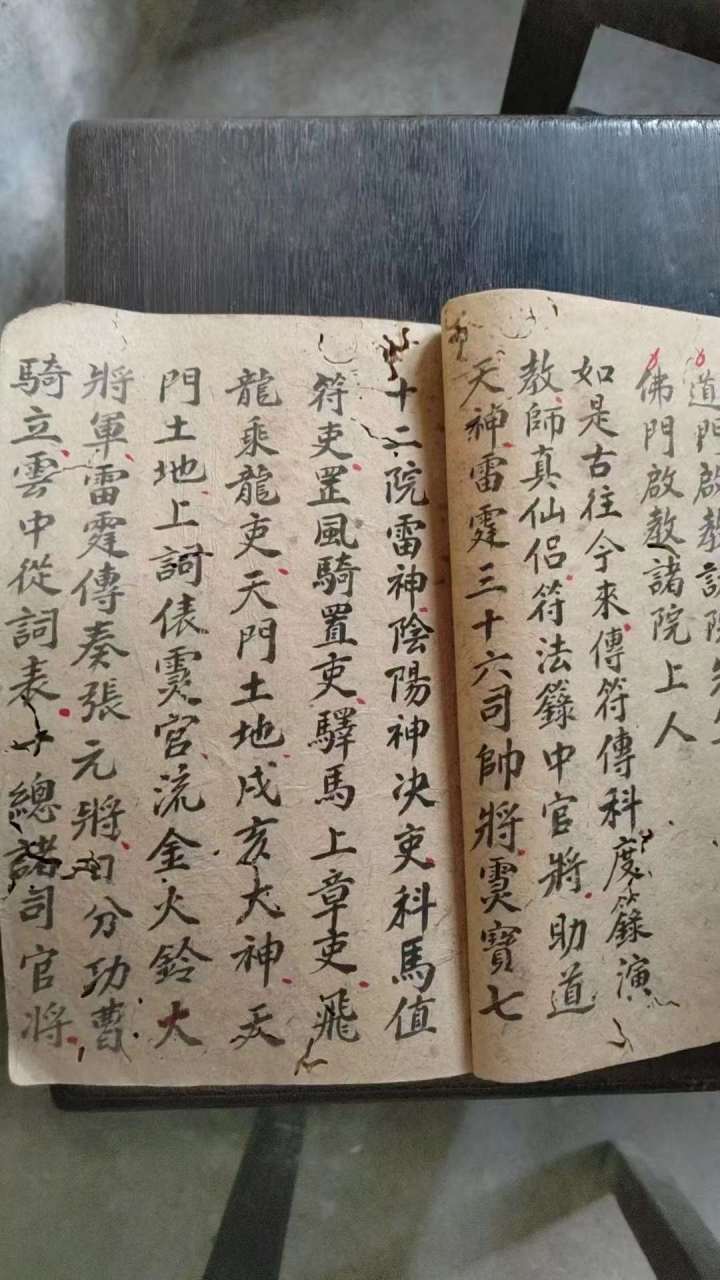 道門啟教諸院
佛門啟教諸院上人
如是古往今來傳符傳科度籙演
教師真仙侣符法籙中官將助道
天神雷霆三十六司帥將靈寶七
十二院雷神陰陽神決吏科馬值
符吏罡風騎置吏驛馬上章吏飛
龍乘龍吏天門土地戌亥大神天
門土地上詞俵靈官流金火鈴大
將軍雷霆傳奏張元將日分功曹
騎立雲中從詞表總諸司官將